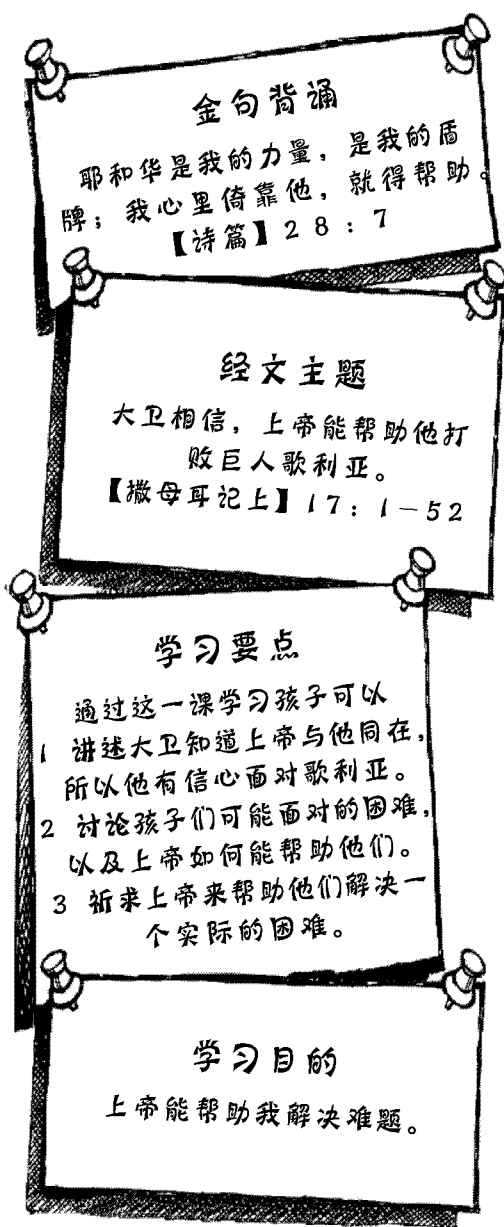 金句背诵
耶和华是我的力量，是我的盾
牌；我心里倚靠他，就得帮助。
【诗篇】28：7
经文主题
大卫相信，上帝能帮助他打
败巨人歌利亚。
【撒母耳记上】17：1-52
学习要点
通过这一课学习孩子可以
1 讲述大卫知道上帝与他同在，
所以他有信心面对歌利亚。
2 讨论孩子们可能面对的困难，
以及上帝如何能帮助他们。
3 祈求上帝来帮助他们解决一
个实际的困难。
学习目的
上帝能帮助我解决难题。